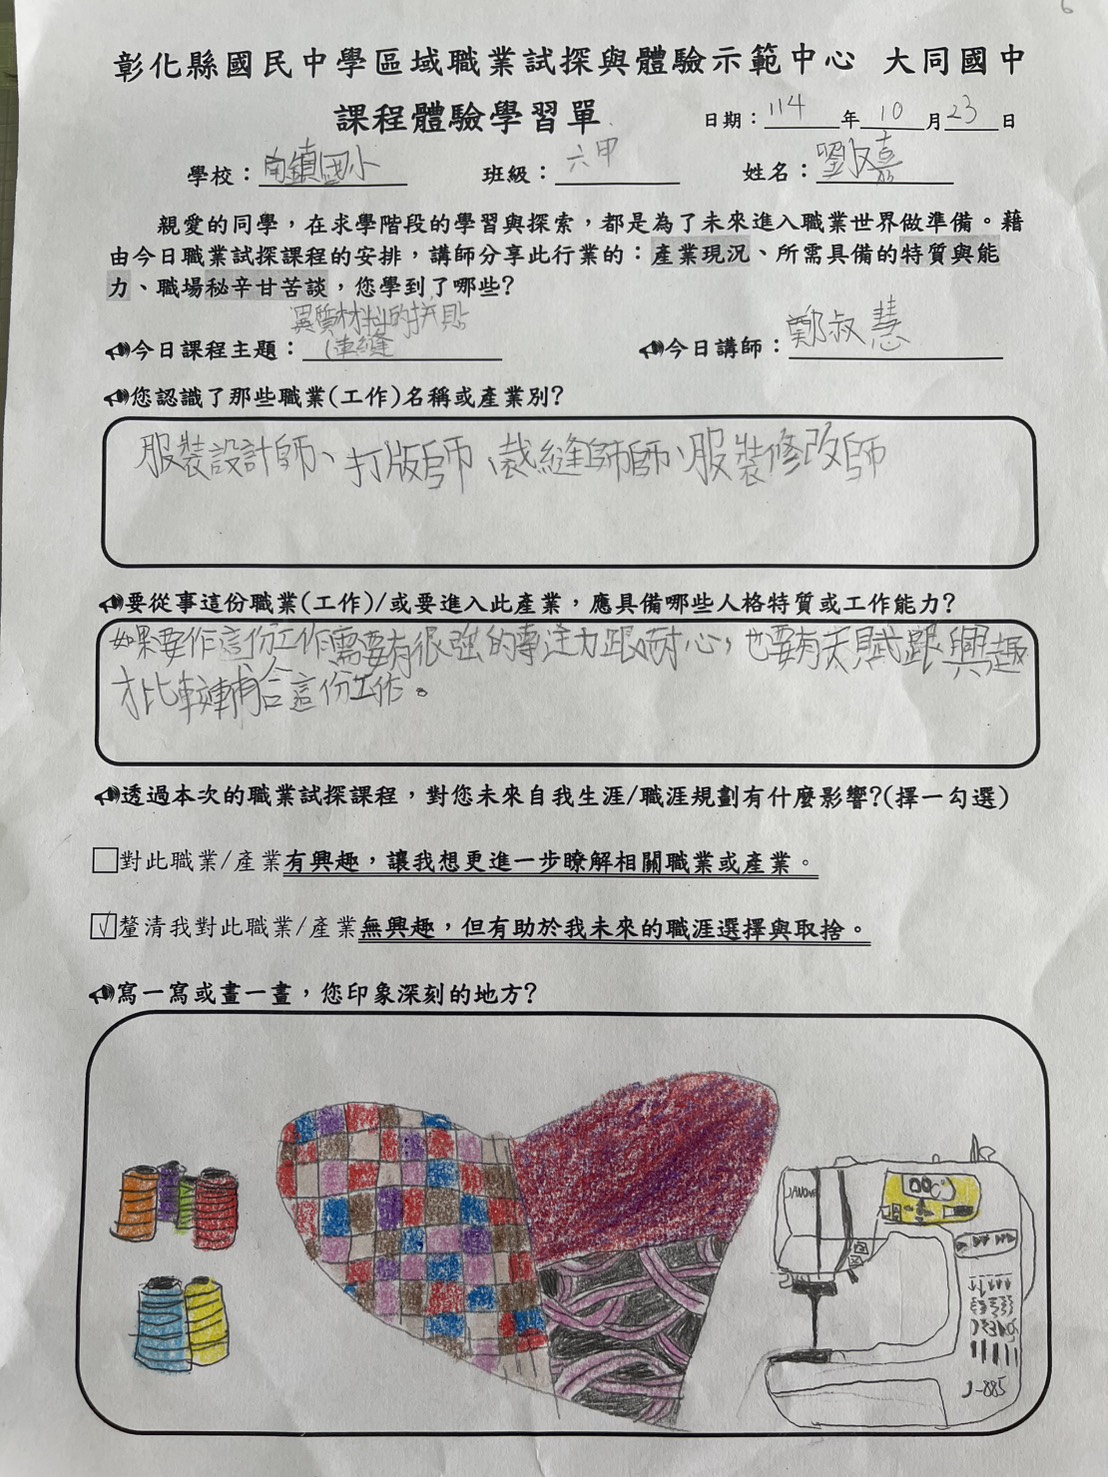 6
彰化縣國民中學區域職業試探與體驗示範中心 大同國中
課程體驗學習單
日期：114年10月23日
學校：南鎮國小 班級：六甲 姓名：劉
親愛的同學，在求學階段的學習與探索，都是為了未來進入職業世界做準備。藉
由今日職業試探課程的安排，講師分享此行業的：產業現況、所需具備的特質與能
力、職場秘辛甘苦談，您學到了哪些?
異質材料的拼貼
今日課程主題：(車縫 今日講師：鄭叔慧
您認識了那些職業(工作)名稱或產業別?
服裝設計師、打版師、裁縫師師、服裝修改師
要從事這份職業(工作)/或要進入此產業，應具備哪些人格特質或工作能力?
如果要作這份工作需要有很強的專注力跟耐心，也要有天賦跟興趣
才比較合這份工作。
透過本次的職業試探課程，對您未來自我生涯/職涯規劃有什麼影響?(擇一勾選)
□對此職業/產業有興趣，讓我想更進一步瞭解相關職業或產業。
☑釐清我對此職業/產業無興趣，但有助於我未來的職涯選擇與取捨。
寫一寫或畫一畫，您印象深刻的地方?
JANOME
J-885